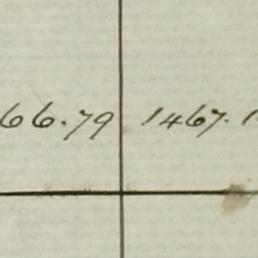 66.79 1467.